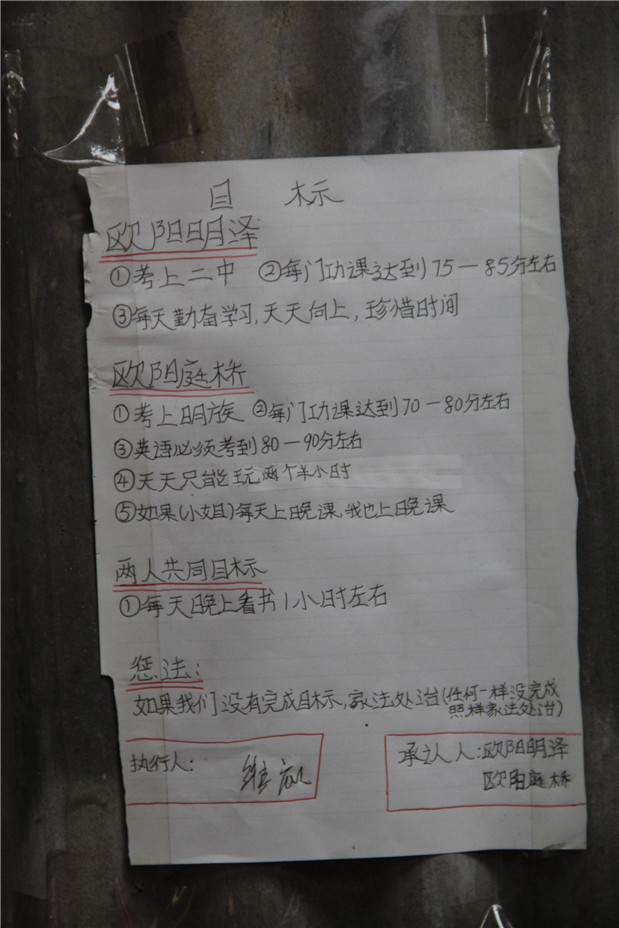 目 标
欧阳明泽
①考上二中 ②每门功课达到75—85分左右
③每天勤奋学习,天天向上,珍惜时间
欧阳庭桥
①考上明族 ②每门功课达到70—80分左右
③英语必须考到80—90分左右
④天天只能玩两个半小时
⑤如果(小姐)每天上晚课,我也上晚课
两人共同目标
①每天晚上看书1小时左右
惩法:
如果我们没有完成目标,家法处治(任何一样没完成
照样家法处治)
执行人:
承认人:欧阳明泽
欧阳庭桥